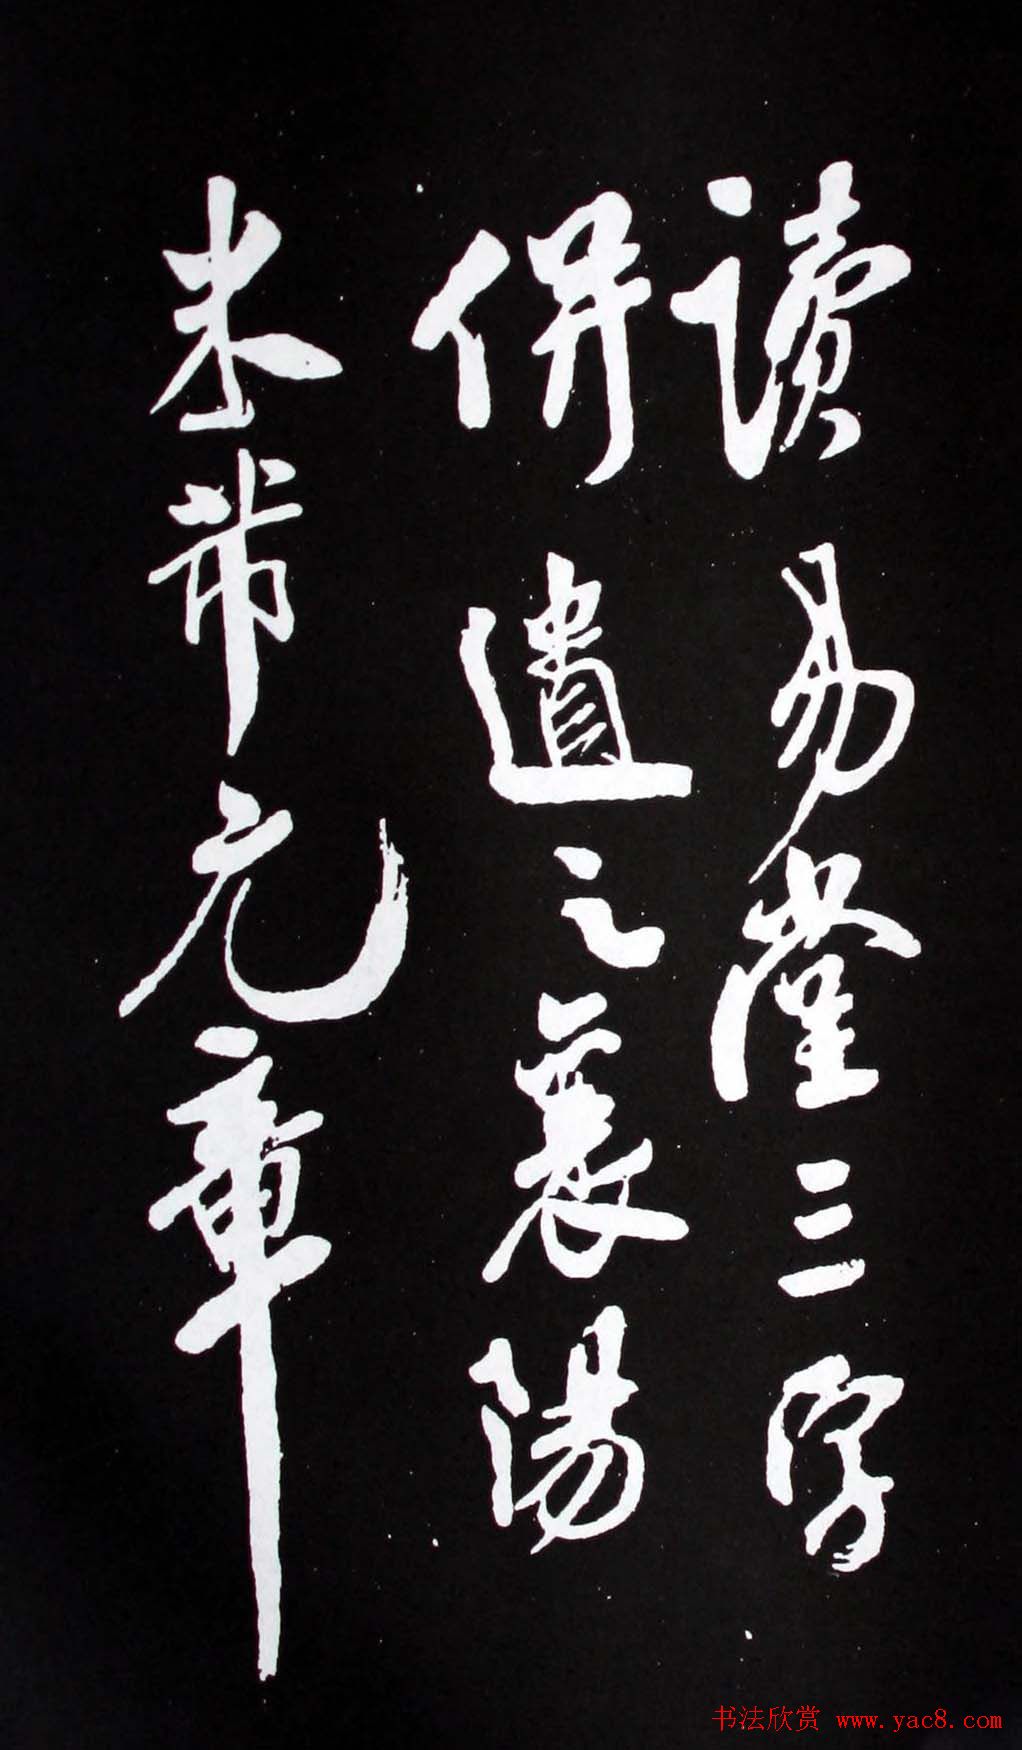 讀易堂三字
併遺之襄陽
米芾元章
书法欣赏 www.yac8.com